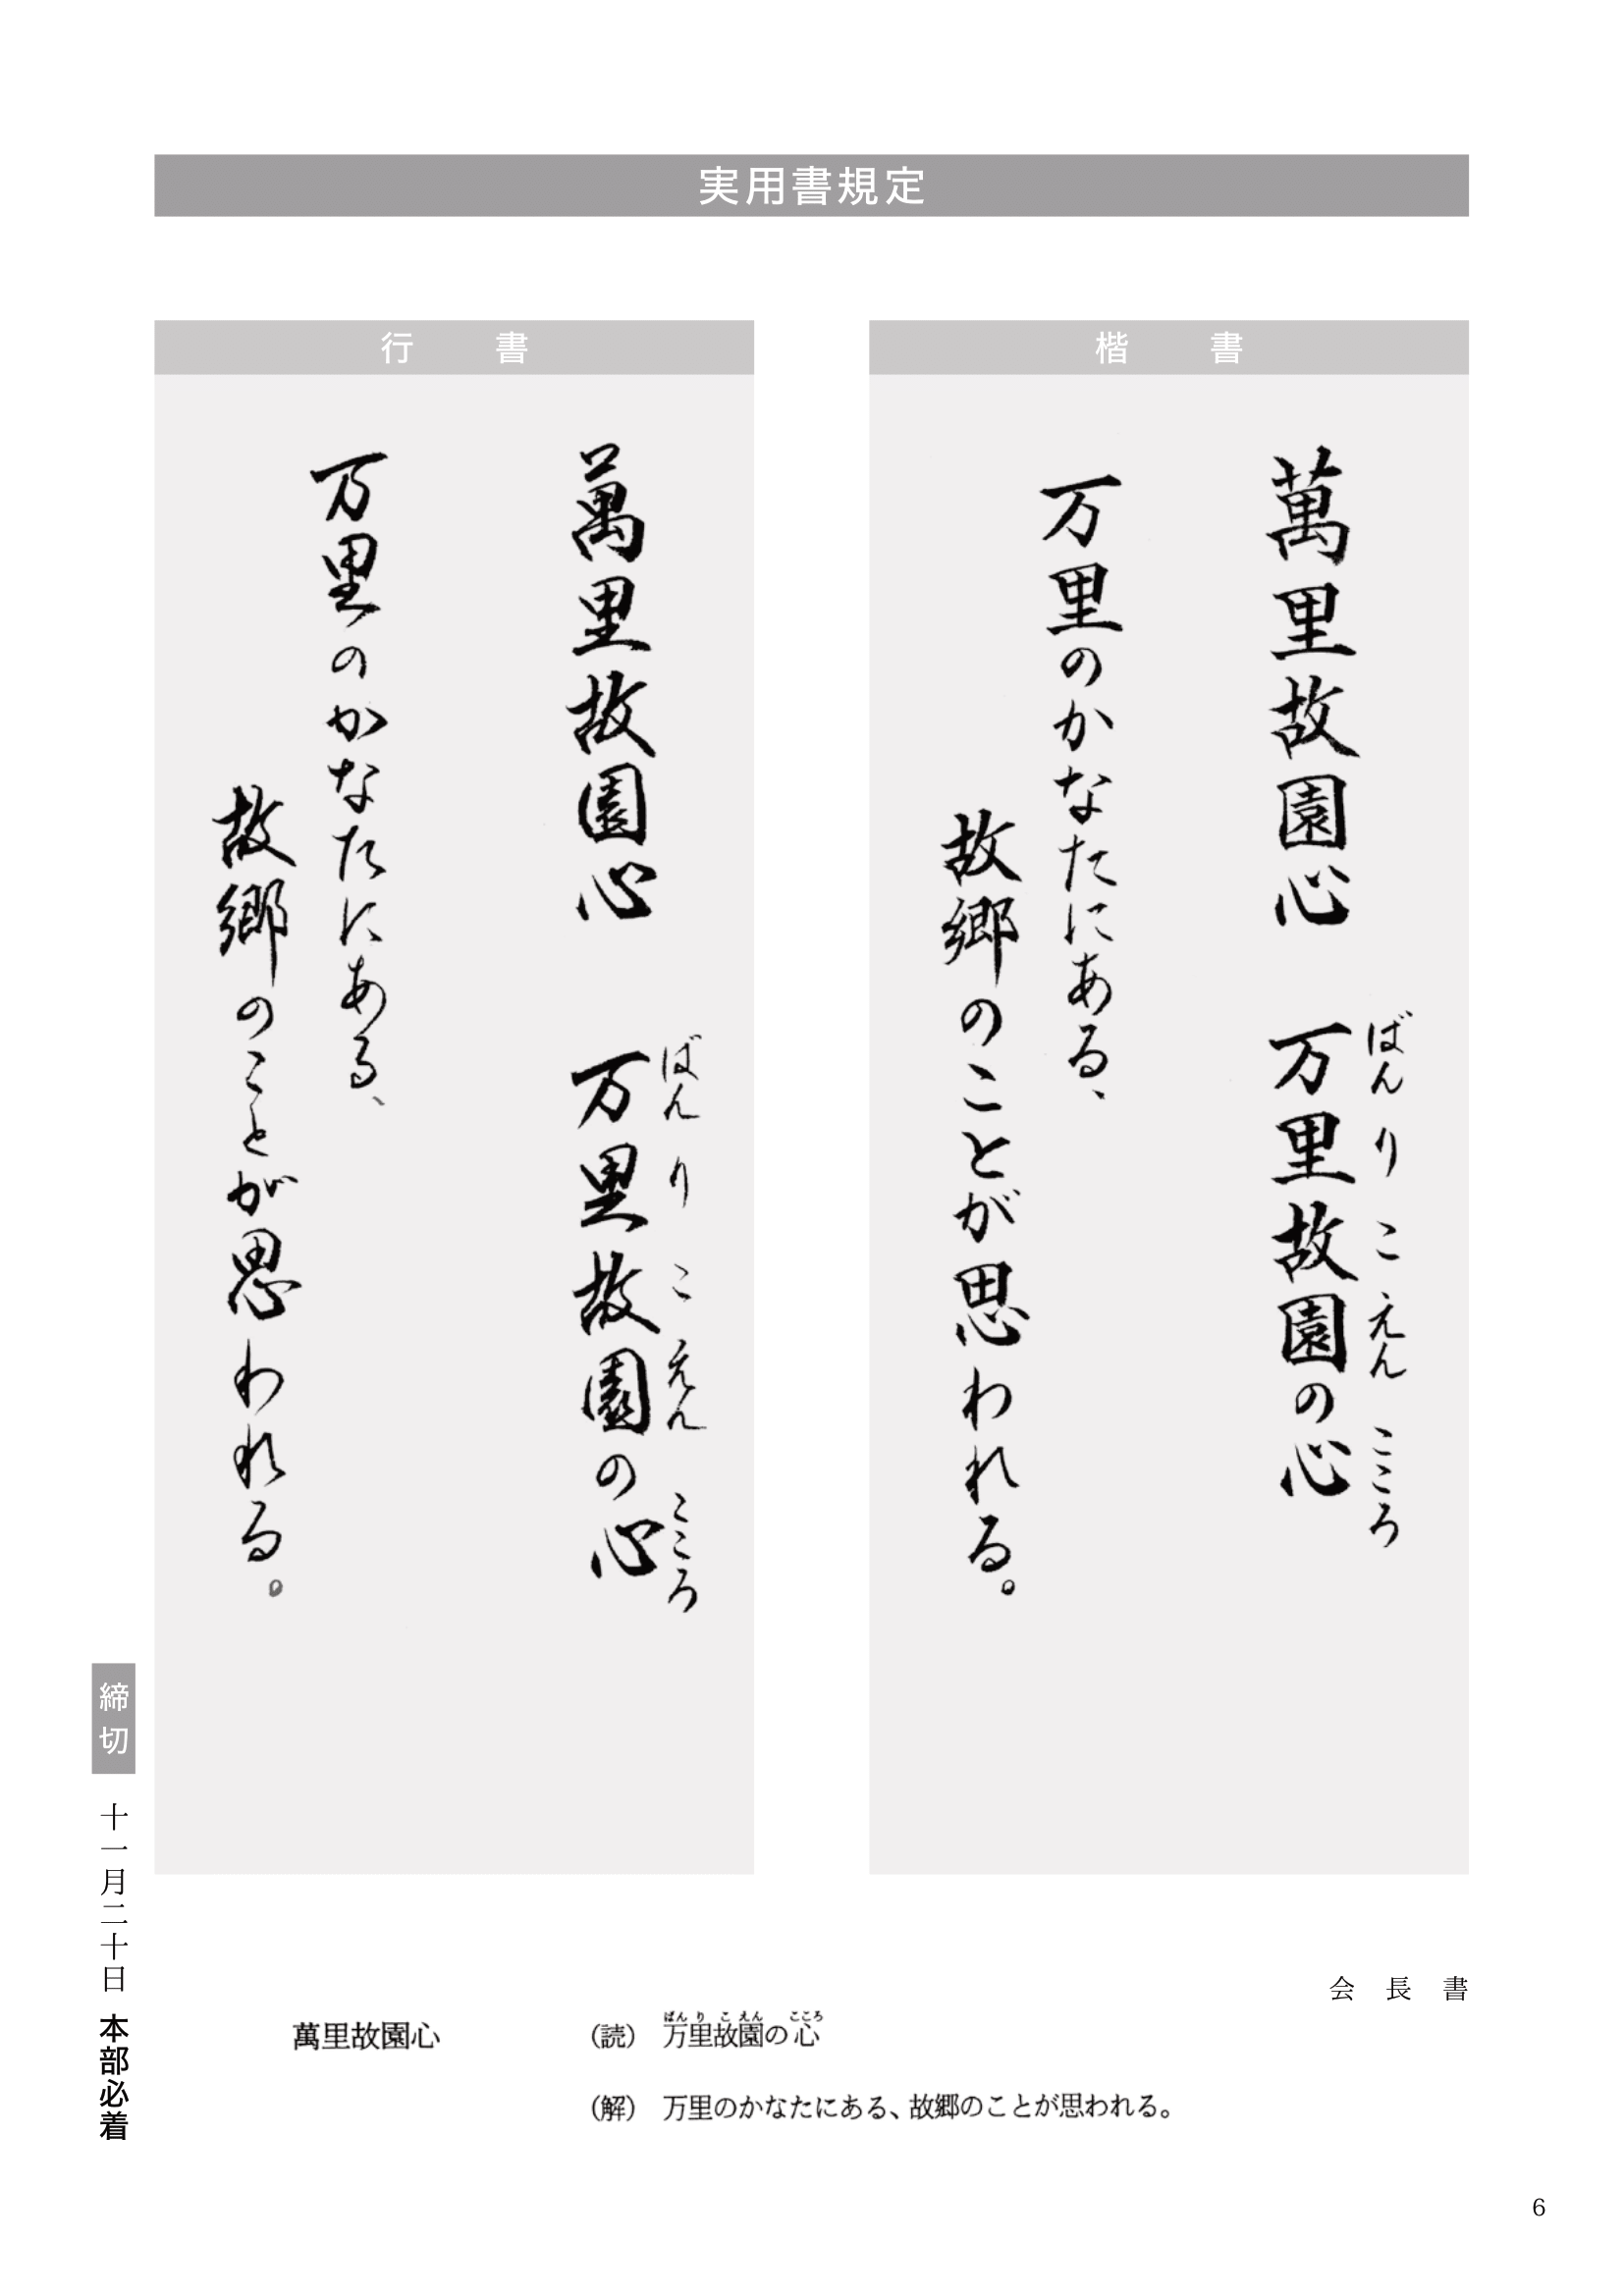 実用書規定
楷書
ばんりこえんこころ
萬里故園心　万里故園の心
万里のかなたにある、
故郷のことが思われる。
行書
ばんりこえんこころ
萬里故園心　万里故園の心
万里のかなたにある、
故郷のことが思われる。
会長書
萬里故園心
ばんりこえんこころ
（読）　万里故園の心
（解）　万里のかなたにある、故郷のことが思われる。
締切　十一月二十日　本部必着
6